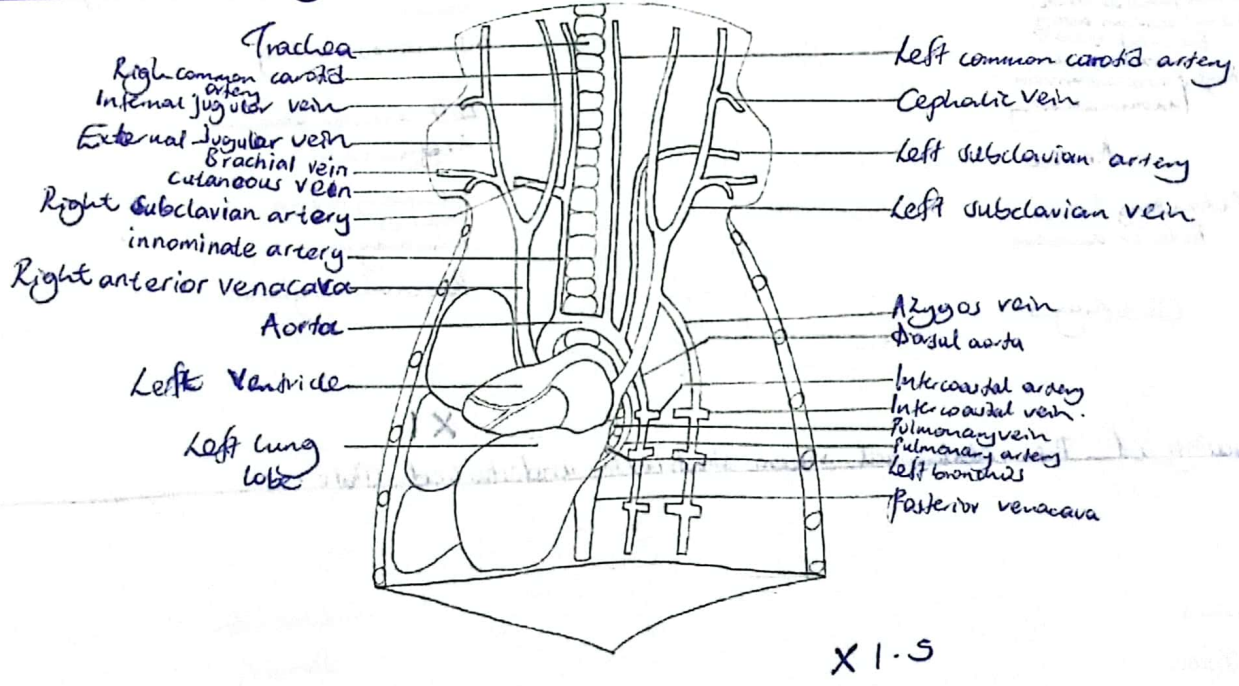 Trachea
Righ common carotid
artery
Internal jugular vein
External Jugular vein
Brachial vein
cutaneous vein
Right subclavian artery
innominate artery
Right anterior venacava
Aorta
Left Ventricle
Left lung
lobe
Left common carotid artery
Cephalic vein
Left subclavian artery
Left subclavian vein
Azygos vein
Dorsal aorta
Intercoastal artery
Intercoastal vein.
Pulmonary vein
Pulmonary artery
Left bronchus
Posterior venacava
X 1.5